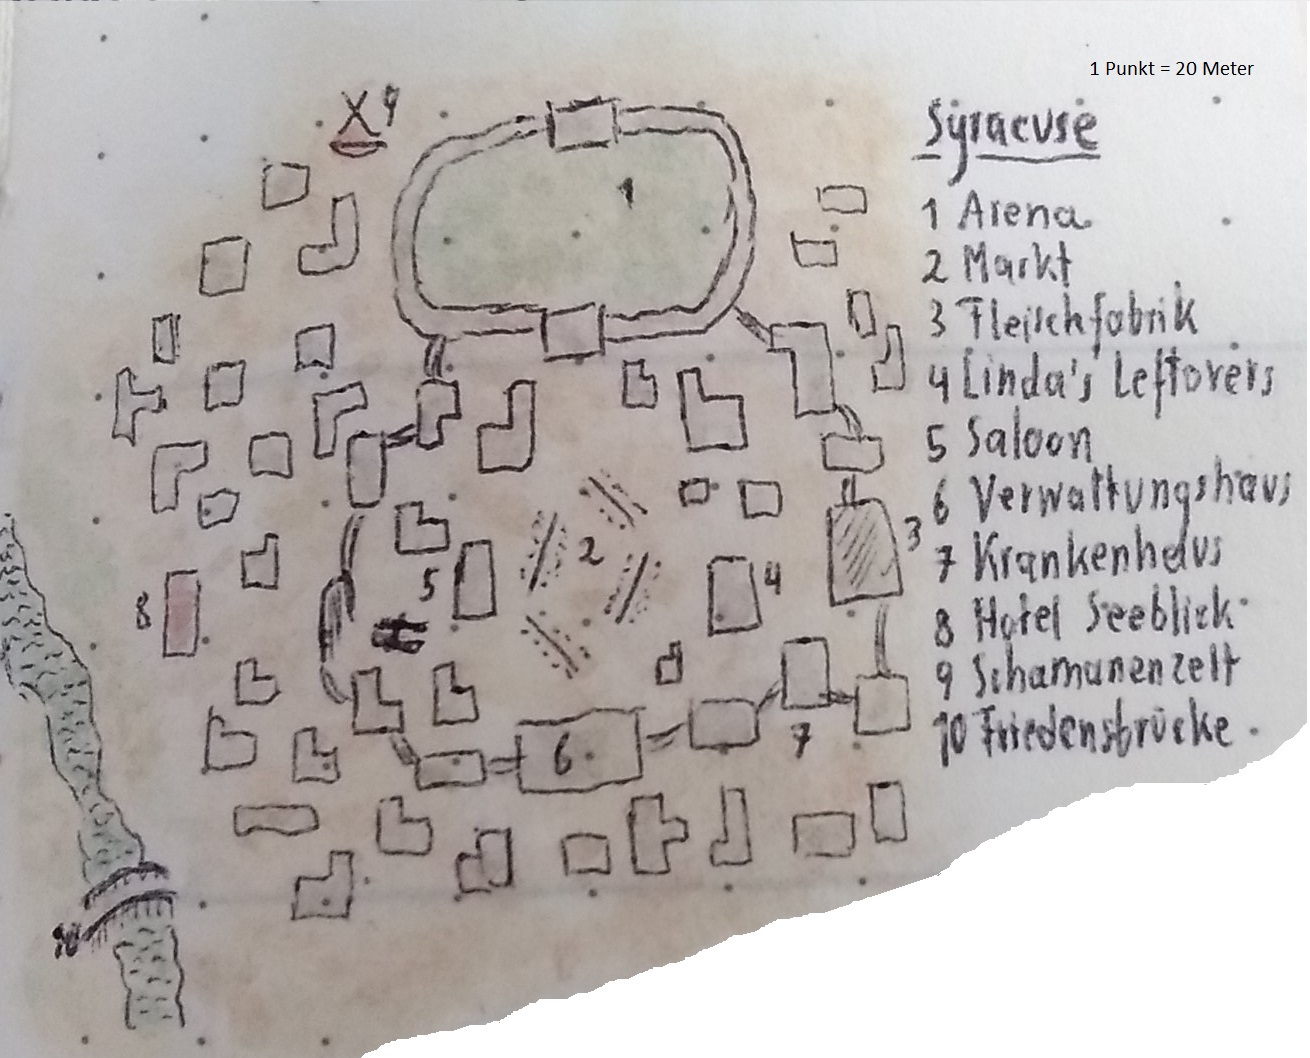 1 Punkt = 20 Meter
Syracuse
1 Arena
2 Markt
3 Fleischfabrik
4 Linda's Leftovers
5 Saloon
6 Verwaltungshaus
7 Krankenhaus
8 Hotel Seeblick
9 Schamanenzelt
10 Friedensbrücke
9
1
2
3
5
4
8
6
7
10